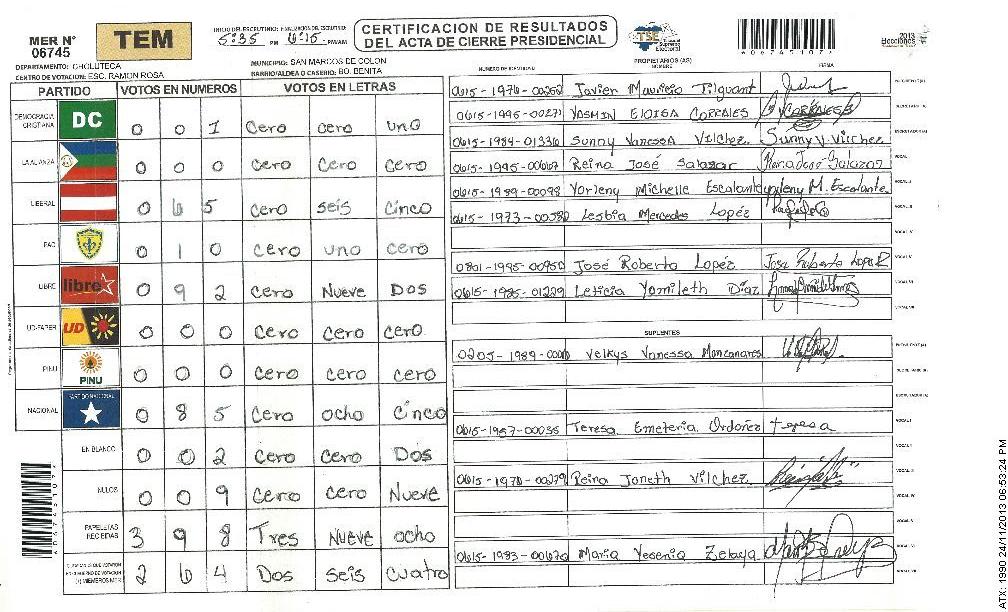 MER N° 06745
TEM
INICIO DEL ESCRUTINIO: 5:35 PM 6:15 PM/AM
CERTIFICACIÓN DE RESULTADOS
DEL ACTA DE CIERRE PRESIDENCIAL
TSE
Tribunal Supremo Electoral
2013
Elecciones
* 0 6 7 4 5 1 0 7 *
DEPARTAMENTO: CHOLUTECA
MUNICIPIO: SAN MARCOS DE COLON
CENTRO DE VOTACION: ESC. RAMON ROSA
BARRIO/ALDEA O CASERIO: BO. BENITA
PARTIDO VOTOS EN NUMEROS VOTOS EN LETRAS
DEMOCRACIA CRISTIANA DC 0 0 1 Cero cero uno
LA ALIANZA 0 0 0 Cero Cero Cero
LIBERAL 0 6 5 Cero seis Cinco
PAC 0 1 0 Cero uno cero
LIBRE libre 0 9 2 Cero Nueve Dos
UD-FAPER UD 0 0 0 Cero Cero cero
PINU PINU 0 0 0 Cero Cero cero
NACIONAL PARTIDO NACIONAL 0 8 5 Cero ocho Cinco
EN BLANCO 0 0 2 Cero Cero Dos
NULOS 0 0 9 Cero cero Nueve
PAPELETAS RECIBIDAS 3 9 8 Tres Nueve ocho
2 6 4 Dos seis cuatro
NUMERO DE IDENTIDAD PROPIETARIOS (AS) NOMBRE FIRMA
Javier Mauricio
0615-1995-00271 YASMIN ELOISA CORRALES CORRALES
0615-1984-01336 Sunny Vanessa Vilchez Sunny V. Vilchez
0615-1995-00667 Reina José Salazar Reina José Salazar
0615-1989-00098 Yorleny Michelle Escalante Yorleny M. Escalante
Lesbia Mercedes Lopéz
0801-1995-00950 José Roberto Lopéz Jose Roberto Lopez
0615-1985-01229 Leticia Yamileth Diaz
SUPLENTES
Velkys Vanessa Manzanares
0615-1957-00035 Teresa Emeteria Ordoñez teresa
0615-1970-00279 Reina Janeth Vilchez
0615-1983-00670 Maria Yesenia Zelaya
ATX: 1990 24/11/2013 06:53:24 PM